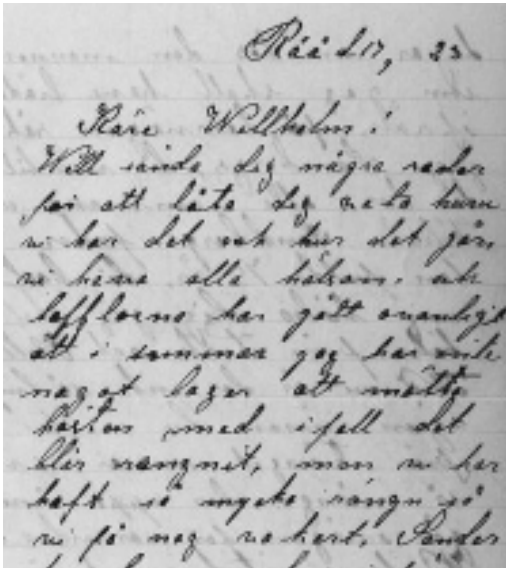 Råå d 17, 23
Käre Willhelm!
Will sända dig några rader
för att låta dig veta huru
vi har det och hur det går,
vi hava alla hälsan, och
har gått ovanligt
i sommar jag har
något lager att möta
hösten med ifall det
blir men vi har
haft så mycke rängn så
vi få nog Sänder